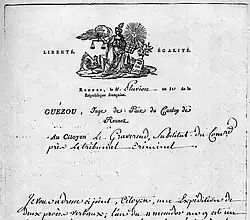 LIBERTÉ. ÉGALITÉ.
RENNES, le 11. Pluviôse an 10e de la
République française.
GUÉZOU, Juge de Paix du Canton de
Rennes
Au Citoyen Le Graverend, Substitut du
près le tribunal Criminel
Je vous adresse ci joint, Citoyen, une Expédition de
deux procès verbaux; l'un du 11 an 9 est un